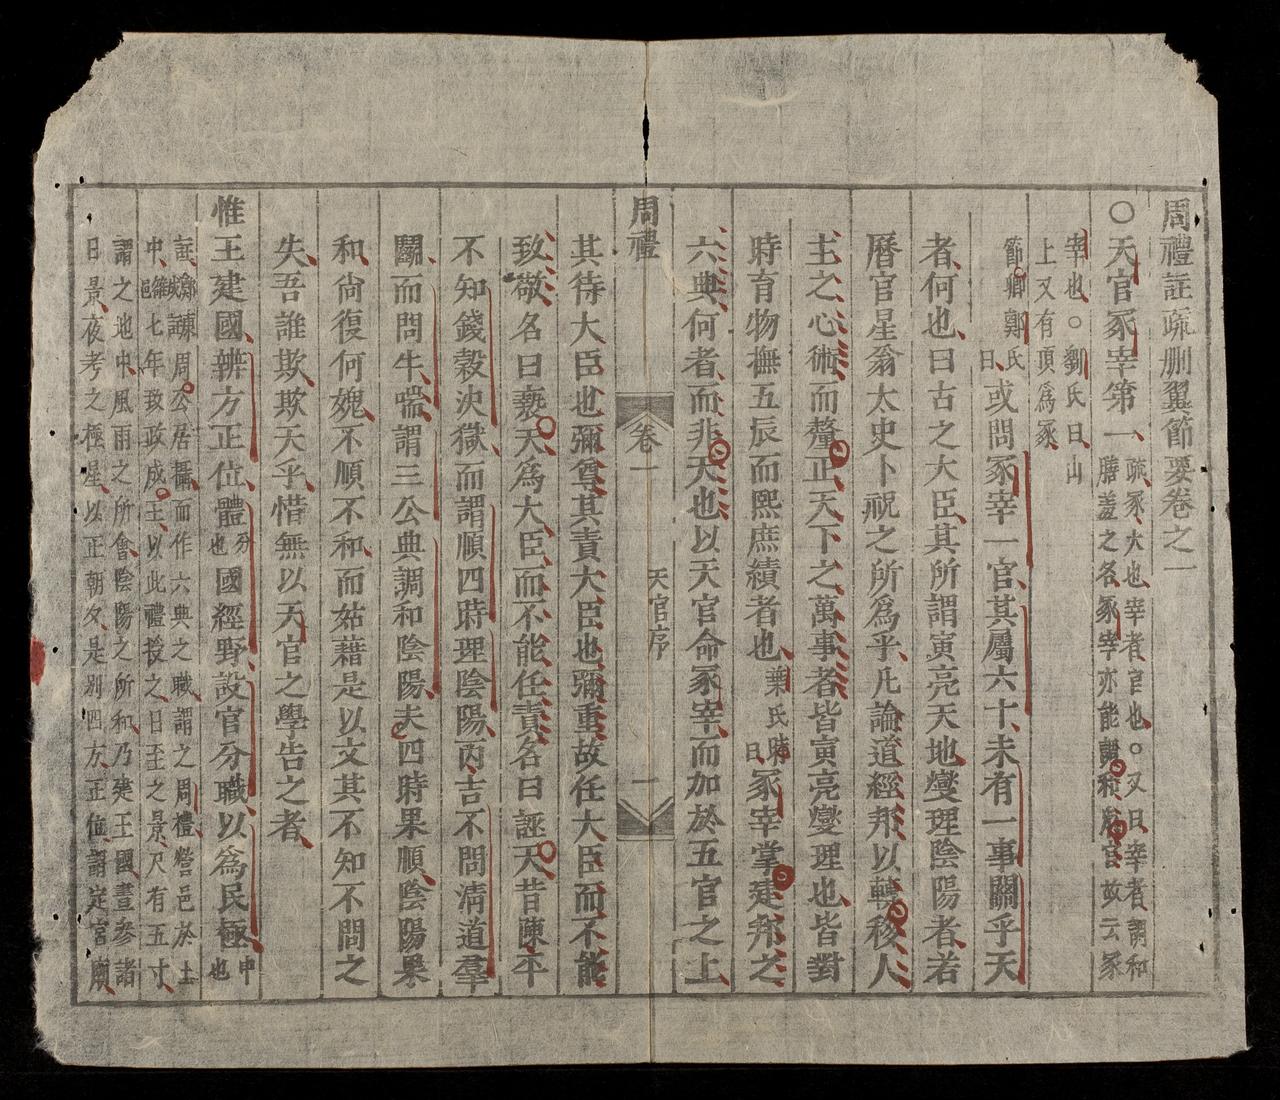 周禮註疏刪翼節要卷之一
○天官冢宰第一
疏冢大也宰者官也○又曰宰者調和
膳羞之名冢宰亦能調和衆官故云冢
宰也○劉氏曰山
上又有頂爲冢
節卿鄭氏曰或問冢宰一官其屬六十未有一事關乎天
者何也曰古之大臣其所謂寅亮天地燮理陰陽者若
曆官星翁太史卜祝之所爲乎凡論道經邦以轉移人
主之心術而釐正天下之萬事者皆寅亮燮理也皆對
時育物撫五辰而熙庶績者也葉氏時曰冢宰掌建邦之
六典何者而非天也以天官命冢宰而加於五官之上
周禮
卷一
天官序
一
其待大臣也彌尊其責大臣也彌重故任大臣而不能
致敬名曰褻天爲大臣而不能任責名曰誣天昔陳平
不知錢穀決獄而謂順四時理陰陽丙吉不問淸道羣
鬭而問牛喘謂三公典調和陰陽夫四時果順陰陽果
和尙復何媿不順不和而姑藉是以文其不知不問之
失吾誰欺欺天乎惜無以天官之學告之者
惟王建國辨方正位體分也國經野設官分職以爲民極中也
註鄭康成謂周公居攝而作六典之職謂之周禮營邑於土
中雒邑七年致政成王以此禮授之日至之景尺有五寸
謂之地中風雨之所會陰陽之所和乃建王國晝參諸
日景夜考之極星以正朝夕是别四方正位謂定宮廟